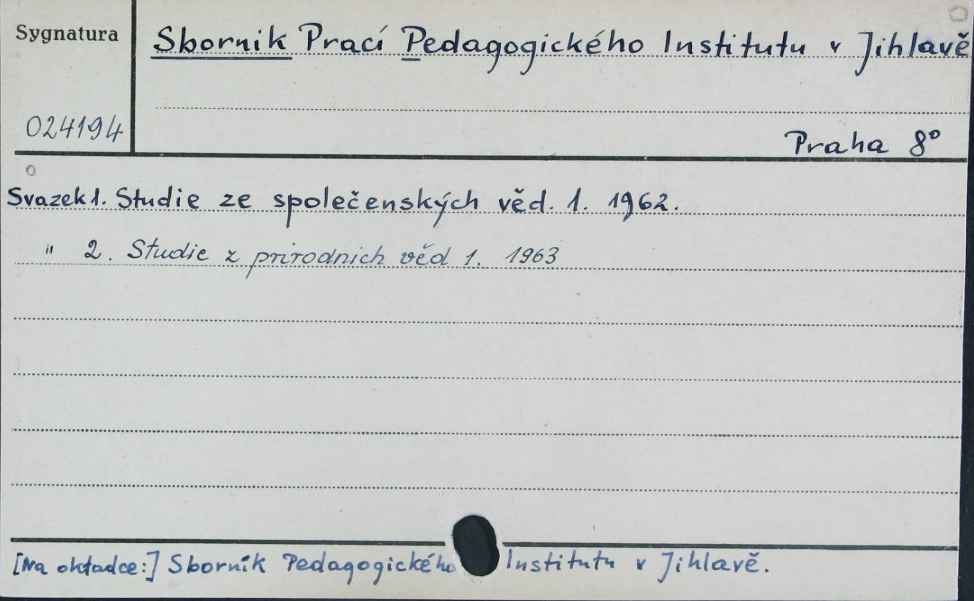 Sygnatura
Sborník Prací Pedagogického Institutu v Jihlavě
024194
Praha 8°
Svazek 1. Studie ze společenských věd. 1. 1962.
" 2. Studie z prirodnich věd 1. 1963
[Na okładce:] Sborník Pedagogického Institutu v Jihlavě.